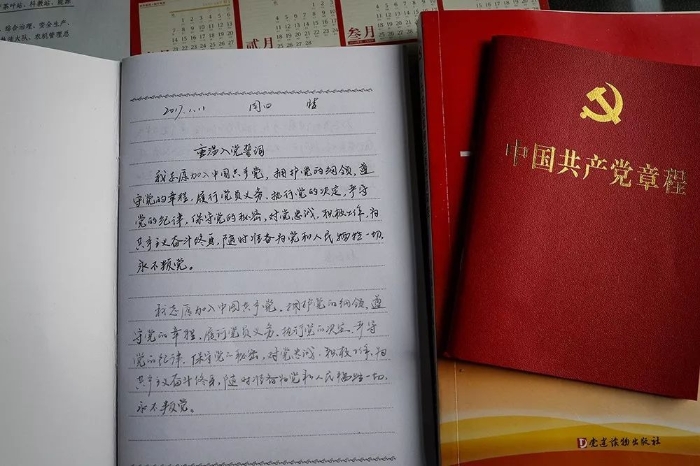 综合治理、安全生产、
贰月
叁月
2017.1.11 周四 晴
重温入党誓词
我志愿加入中国共产党，拥护党的纲领，遵
守党的章程，履行党员义务，执行党的决定，严守
党的纪律，保守党的秘密，对党忠诚，积极工作，为
共产主义奋斗终身，随时准备为党和人民牺牲一切，
永不叛党。
我志愿加入中国共产党，拥护党的纲领，遵
守党的章程，履行党员义务，执行党的决定，严守
党的纪律，保守党的秘密，对党忠诚，积极工作，为
共产主义奋斗终身，随时准备为党和人民牺牲一切，
永不叛党。
中国共产党章程
党建读物出版社